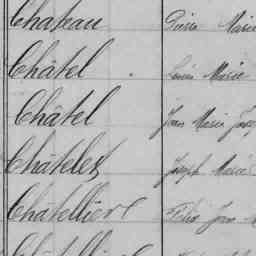 Chateau Pierre Marie
Châtel Louis Marie
Châtel Jean Marie
Châtelet Joseph Marie
Châtellier Jean